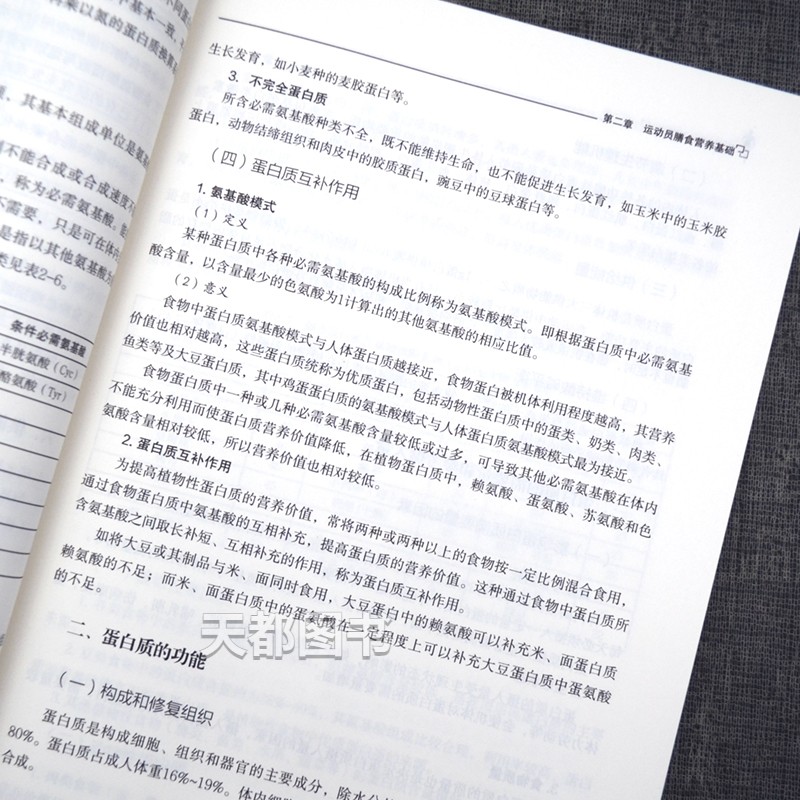 中基本一致、
将乘以氮的蛋白质换算
其基本组成单位是氨
不能合成或合成速度不
称为必需氨基酸。能
不需要，只是可在体内
是指以其他氨基酸为
类见表2-6。
条件必需氨基酸
半胱氨酸（Cyc）
酪氨酸（Tyr）
第二章 运动员膳食营养基础
生长发育，如小麦种的麦胶蛋白等。
3. 不完全蛋白质
所含必需氨基酸种类不全，既不能维持生命，也不能促进生长发育，如玉米中的玉米胶
蛋白，动物结缔组织和肉皮中的胶质蛋白，豌豆中的豆球蛋白等。
（四）蛋白质互补作用
1. 氨基酸模式
（1）定义
某种蛋白质中各种必需氨基酸的构成比例称为氨基酸模式。即根据蛋白质中必需氨基
酸含量，以含量最少的色氨酸为1计算出的其他氨基酸的相应比值。
（2）意义
食物中蛋白质氨基酸模式与人体蛋白质越接近，食物蛋白被机体利用程度越高，其营养
价值也相对越高，这些蛋白质统称为优质蛋白，包括动物性蛋白质中的蛋类、奶类、肉类、
鱼类等及大豆蛋白质，其中鸡蛋蛋白质的氨基酸模式与人体蛋白质氨基酸模式最为接近。
食物蛋白质中一种或几种必需氨基酸含量较低或过多，可导致其他必需氨基酸在体内
不能充分利用而使蛋白质营养价值降低，在植物蛋白质中，赖氨酸、蛋氨酸、苏氨酸和色
氨酸含量相对较低，所以营养价值也相对较低。
2. 蛋白质互补作用
为提高植物性蛋白质的营养价值，常将两种或两种以上的食物按一定比例混合食用，
通过食物蛋白质中氨基酸的互相补充，提高蛋白质的营养价值。这种通过食物中蛋白质所
含氨基酸之间取长补短、互相补充的作用，称为蛋白质互补作用。
如将大豆或其制品与米、面同时食用，大豆蛋白中的赖氨酸可以补充米、面蛋白质
赖氨酸的不足；而米、面蛋白质中的蛋氨酸在一定程度上可以补充大豆蛋白质中蛋氨酸
的不足。
天都图书
二、蛋白质的功能
（一）构成和修复组织
蛋白质是构成细胞、组织和器官的主要成分，除水分
80%。蛋白质占成人体重16%~19%。体内细
合成。